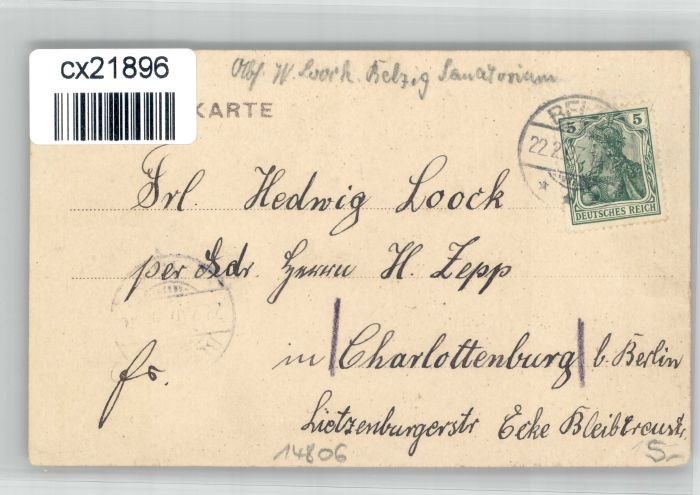 cx21896
Abs. W. Loock. Belzig Sanatorium
KARTE
BEL
22.2
5 5
DEUTSCHES REICH
Frl. Hedwig Loock
per Adr. Herrn H. Zepp
in Charlottenburg b. Berlin
fr.
Lietzenburgerstr Ecke Bleibtreustr.
14806
5-